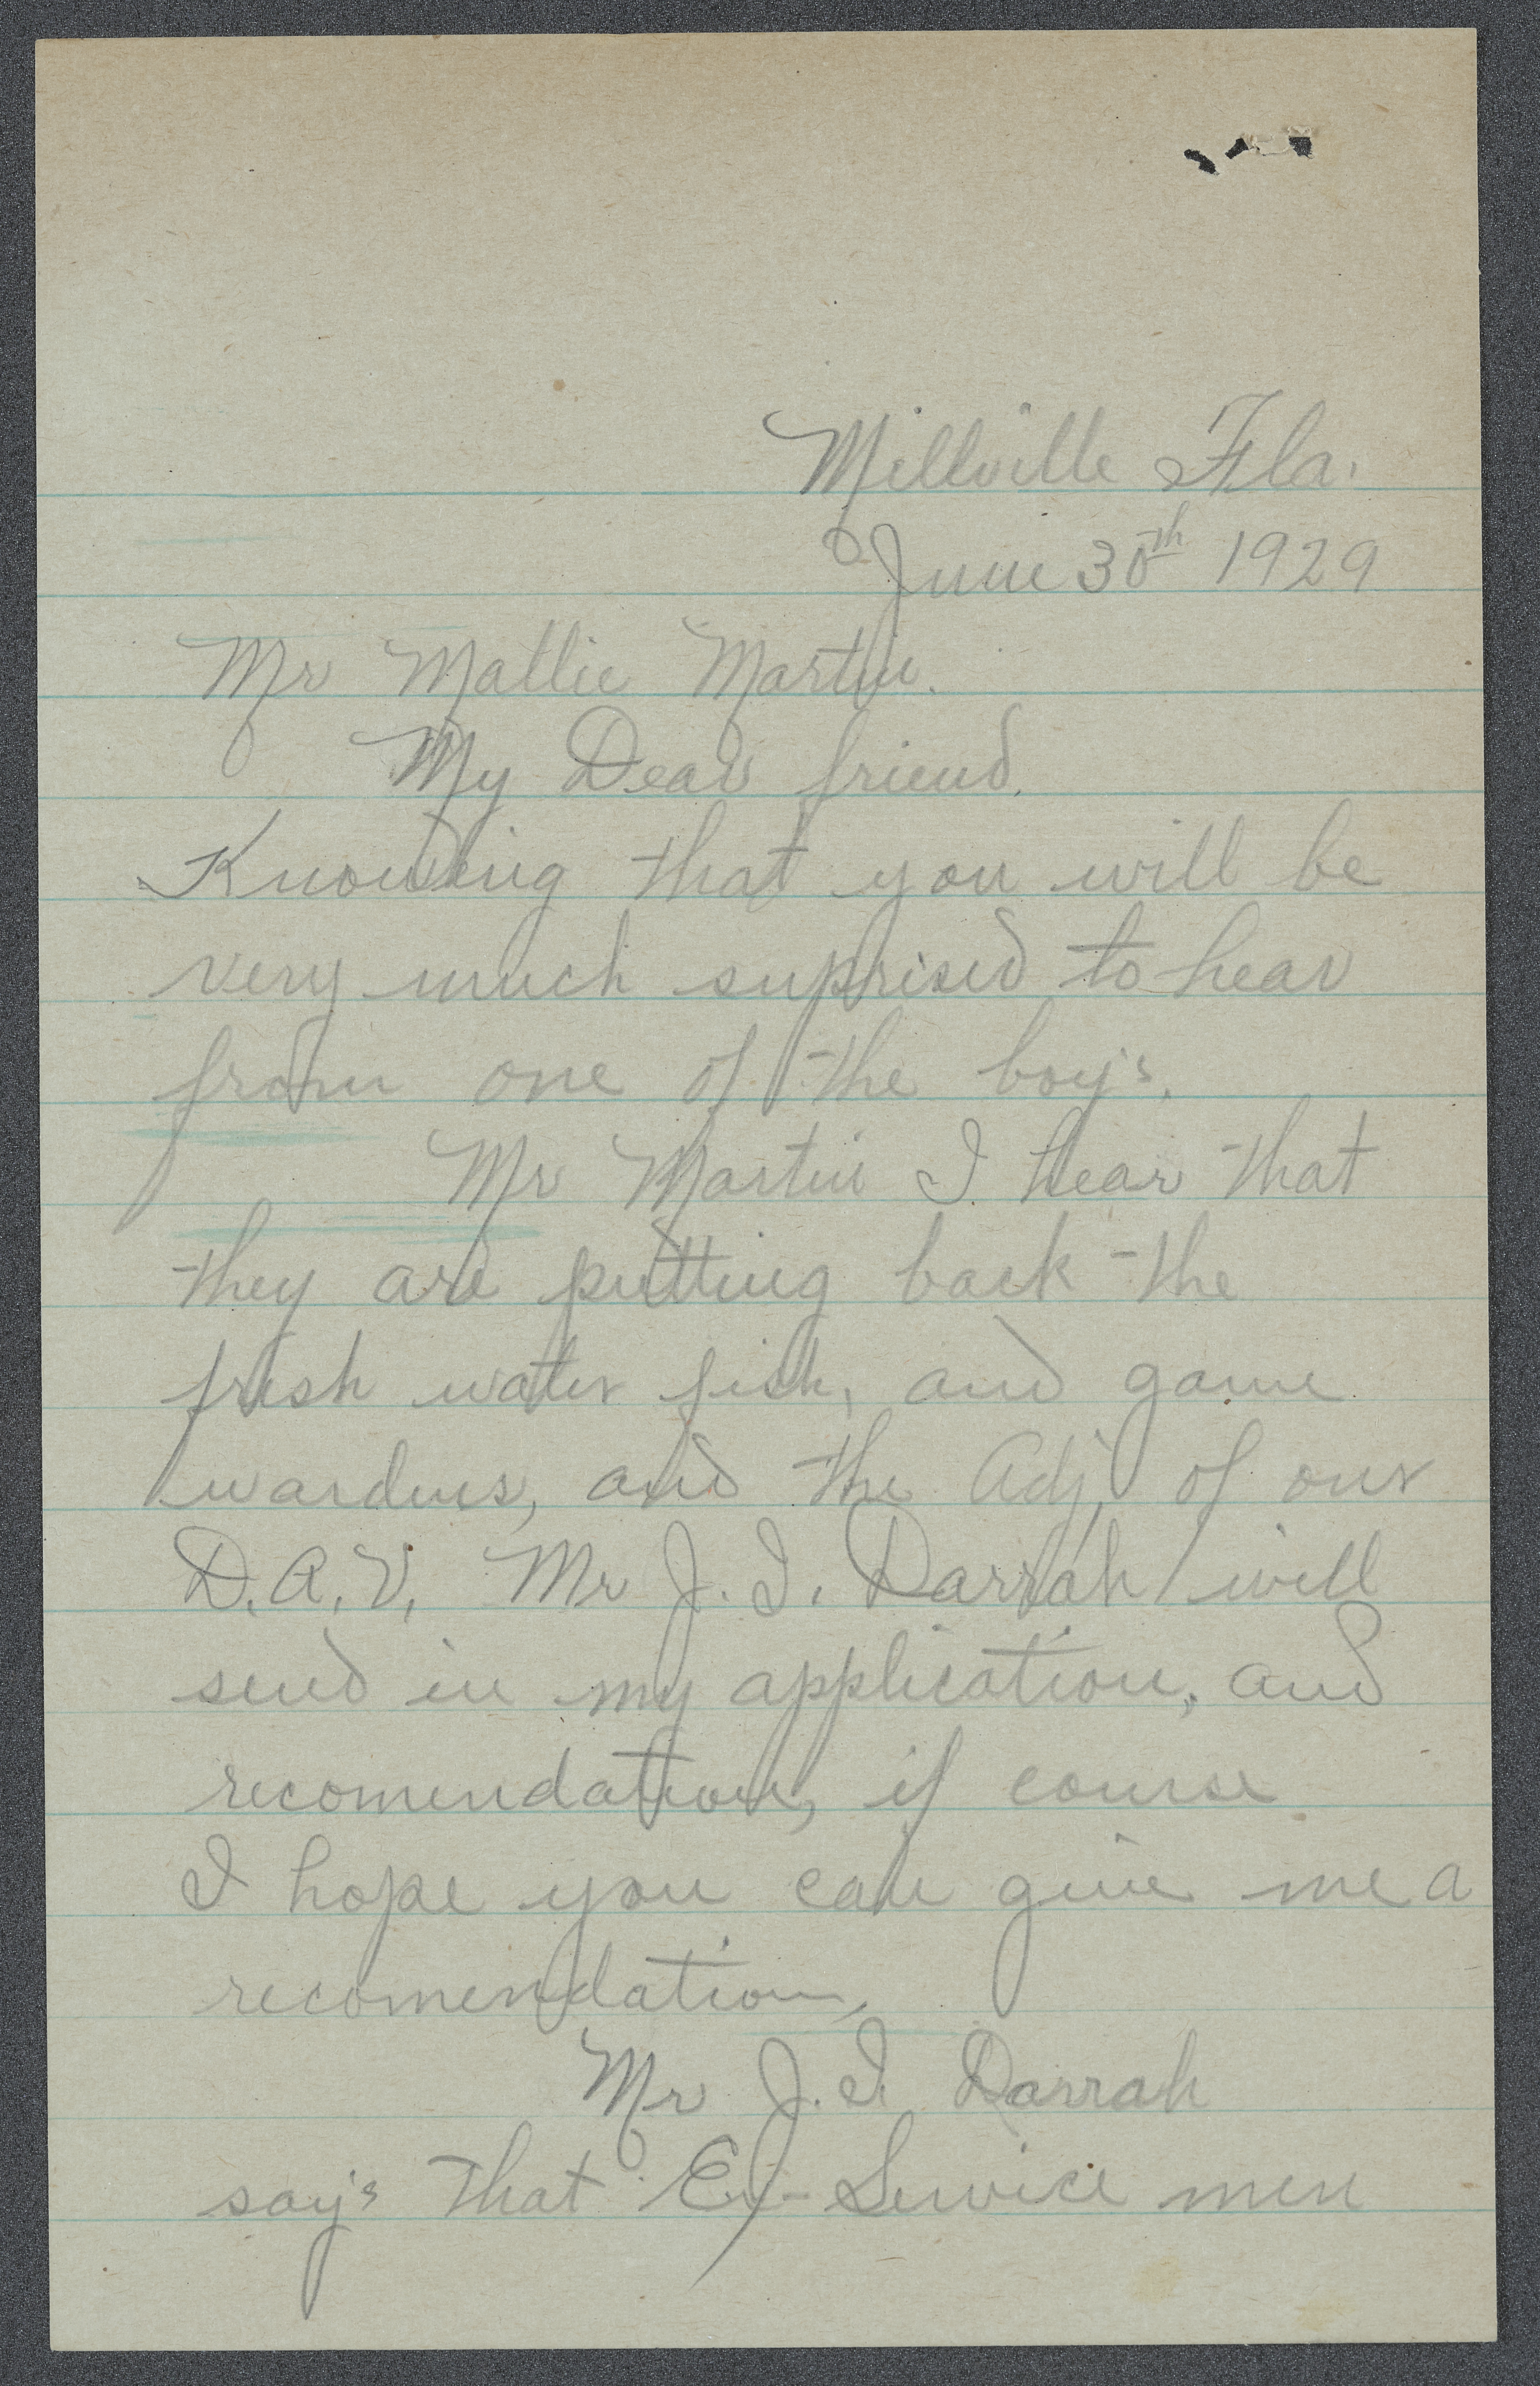 Millville Fla.
June 30th 1929
Mr Mattie Martin.
My Dear friend.
Knowing that you will be
very much suprised to hear
from one of the boy's.
Mr Martin I hear that
they are putting back the
fresh water fish, and game
wardens, and the Adj, of our
D.A.V. Mr J.I. Darrah will
send in my application, and
recomendation, if course
I hope you can give me a
recomendation,
Mr J.I. Darrah
say's that Ex-Service men